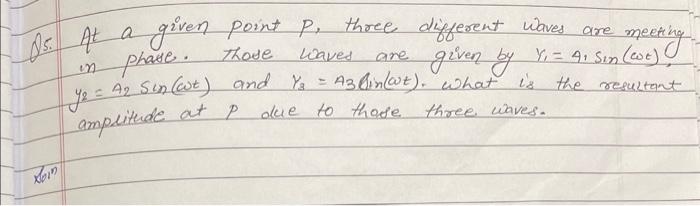 Q5. At a given point P, three different waves are meeting
in phase. Those waves are given by Y₁ = A₁ Sin (ωt),
y₂ = A₂ Sin (ωt) and Y₃ = A₃ Sin(ωt). what is the resultant
amplitude at P due to those three waves.
Soln